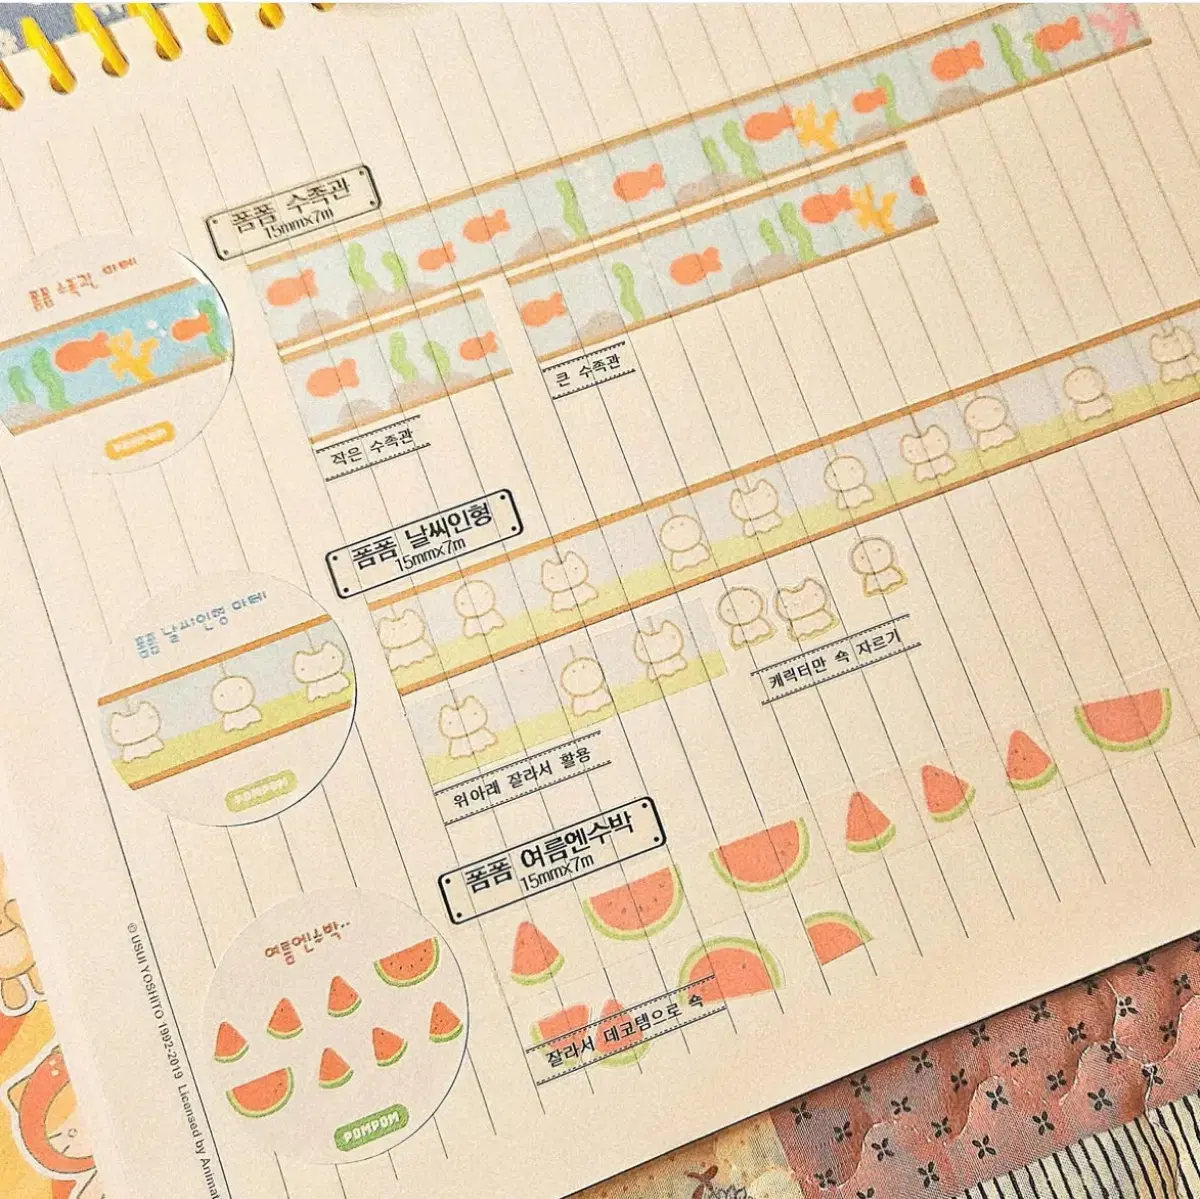 폼폼 수족관
15mmx7m
폼폼 수족관 마테
POMPOM
큰 수족관
작은 수족관
폼폼 날씨인형
15mmx7m
폼폼 날씨인형 마테
POMPOM
캐릭터만 쏙 자르기
위아래 잘라서 활용
폼폼 여름엔수박
15mmx7m
여름엔수박..
POMPOM
잘라서 데코템으로 쏙
© USUI YOSHITO 1992-2019 Licensed by